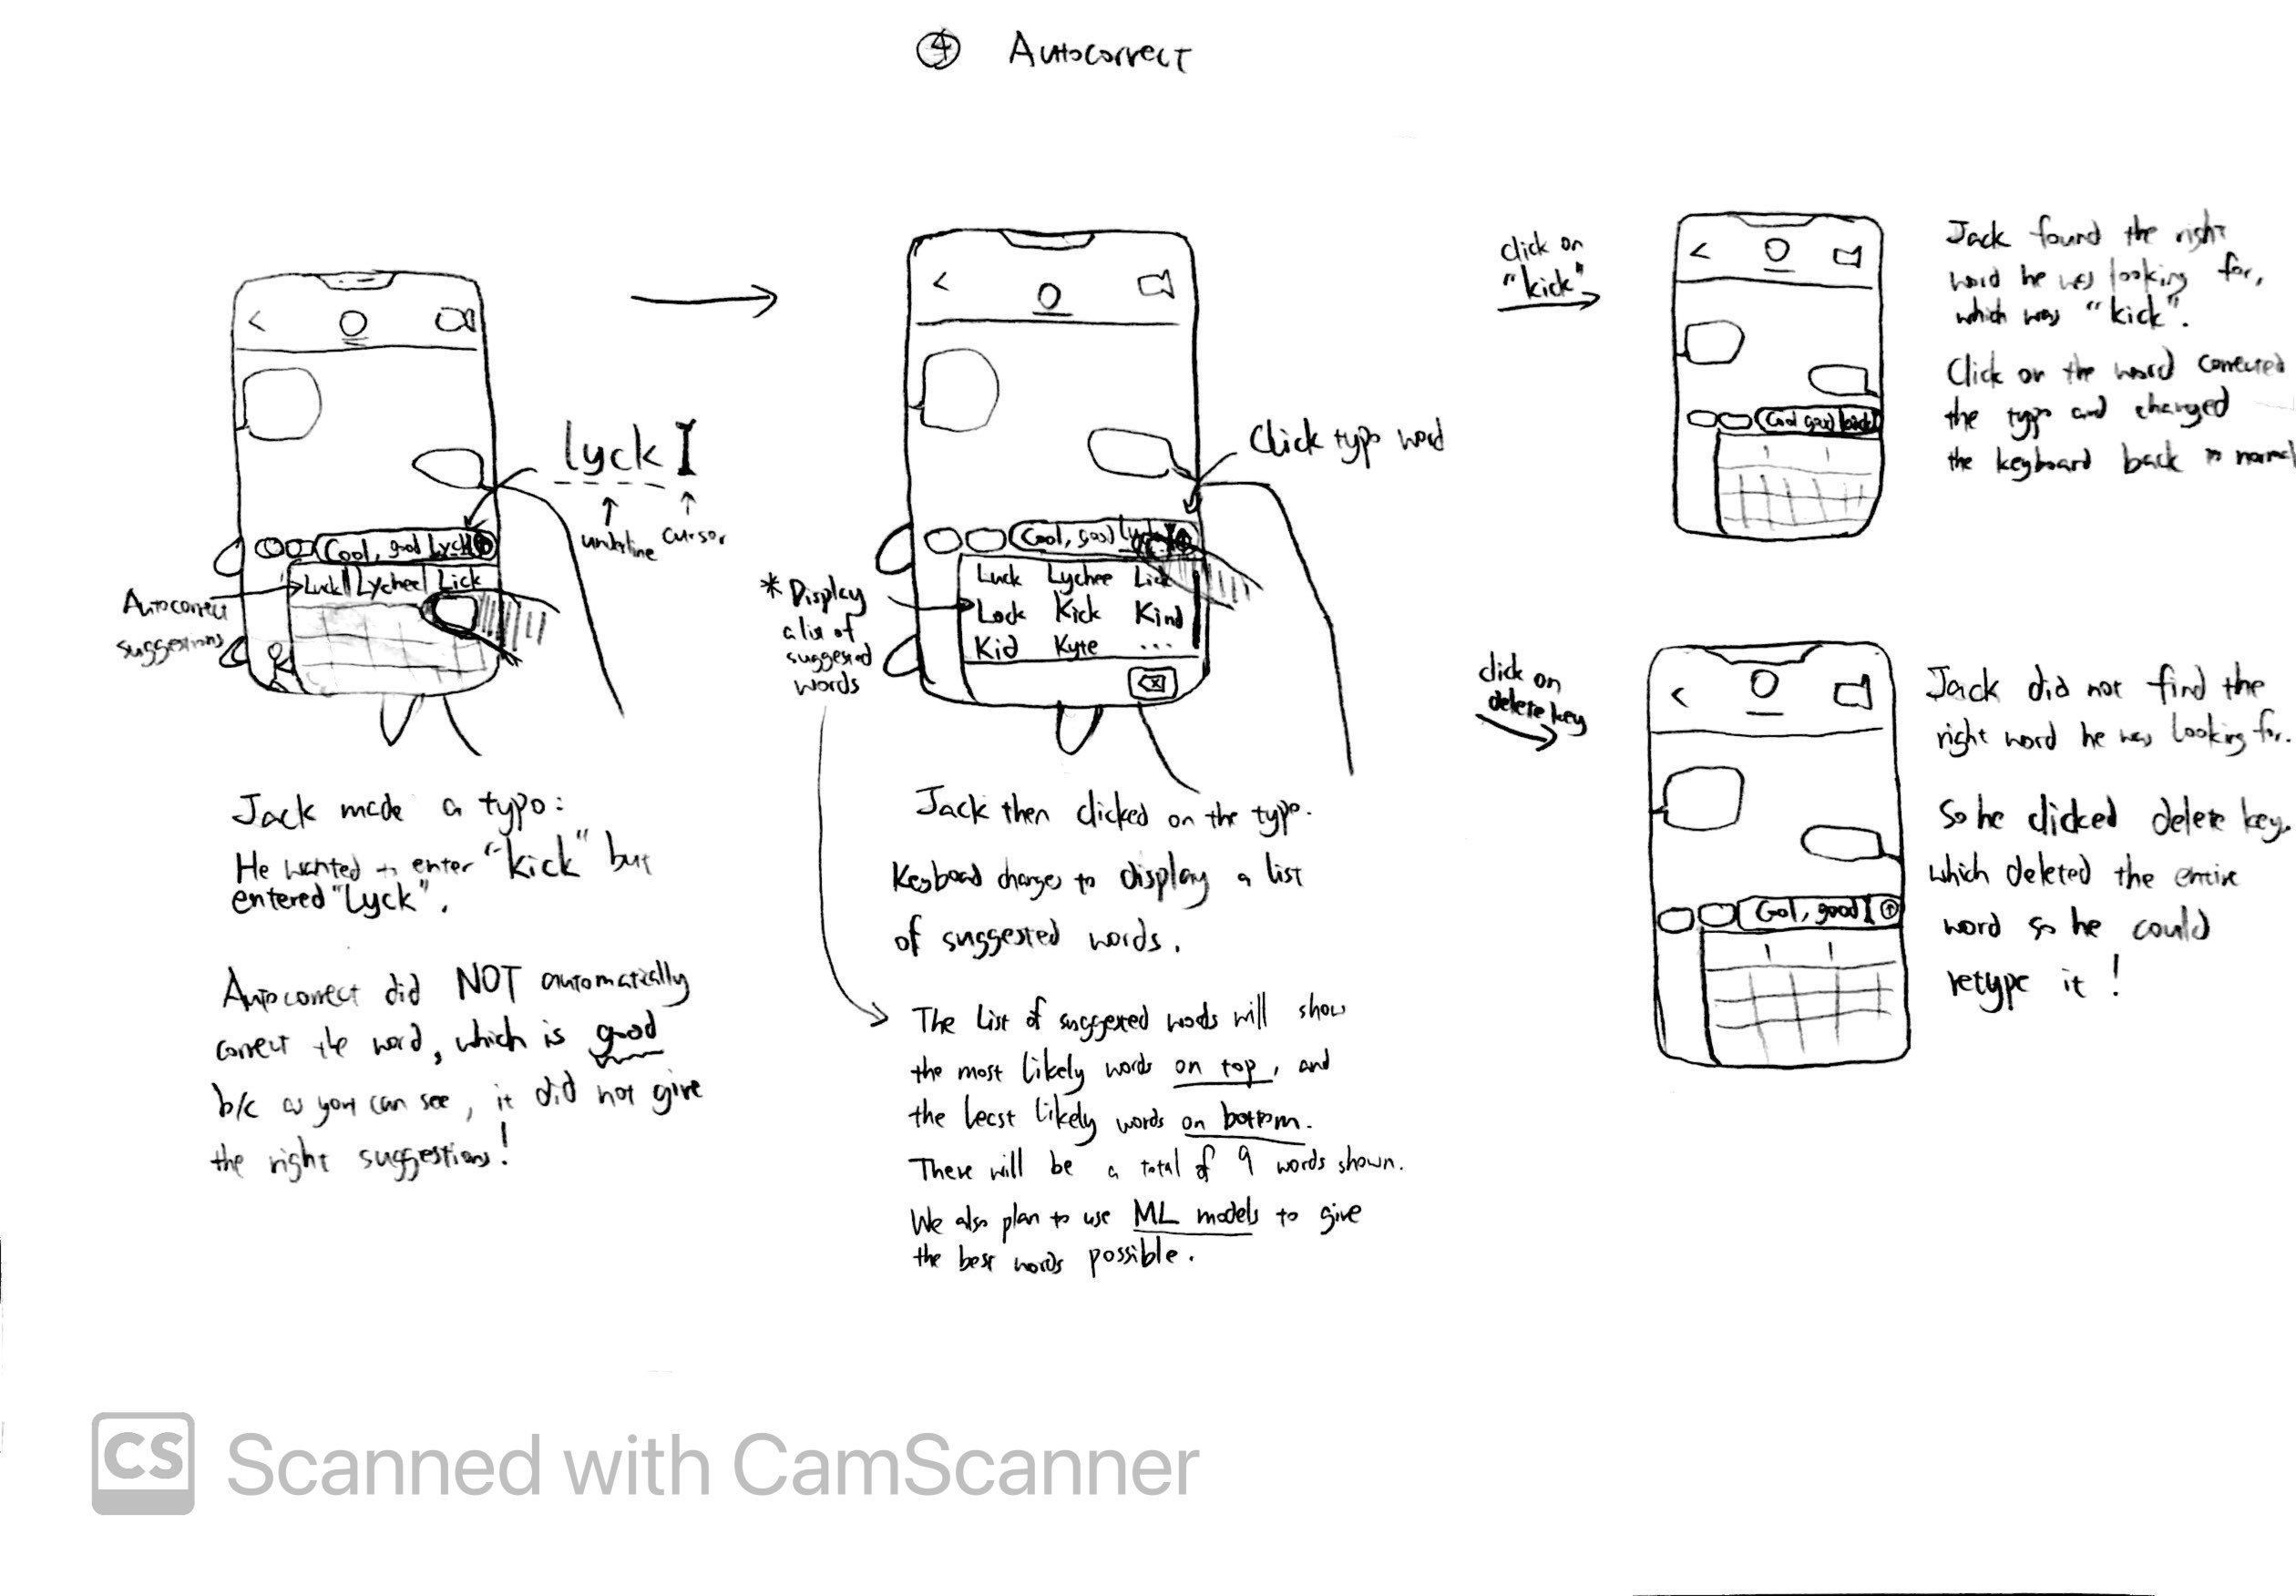 ④ Autocorrect
lyck
underline
cursor
Cool, good Lyck
Luck Lychee Lick
Autocorrect
suggestions
Jack made a typo:
He wanted to enter "kick" but
entered "Lyck".
Autocorrect did NOT automatically
correct the word, which is good
b/c as you can see, it did not give
the right suggestions!
Click typo word
Cool, good Lyck
Luck Lychee Lick
Lock Kick Kind
Kid Kyte ...
* Display
a list of
suggested
words
Jack then clicked on the typo.
Keyboad changes to display a list
of suggested words.
The list of suggested words will show
the most likely words on top, and
the least likely words on bottom.
There will be a total of 9 words shown.
We also plan to use ML models to give
the best words possible.
click on
"kick"
Cool good kick
Jack found the right
word he was looking for,
which was "kick".
Click on the word corrected
the typo and changed
the keyboard back to normal
click on
delete key
Cool, good
Jack did not find the
right word he was looking for.
So he clicked delete key,
which deleted the entire
word so he could
retype it!
CS Scanned with CamScanner